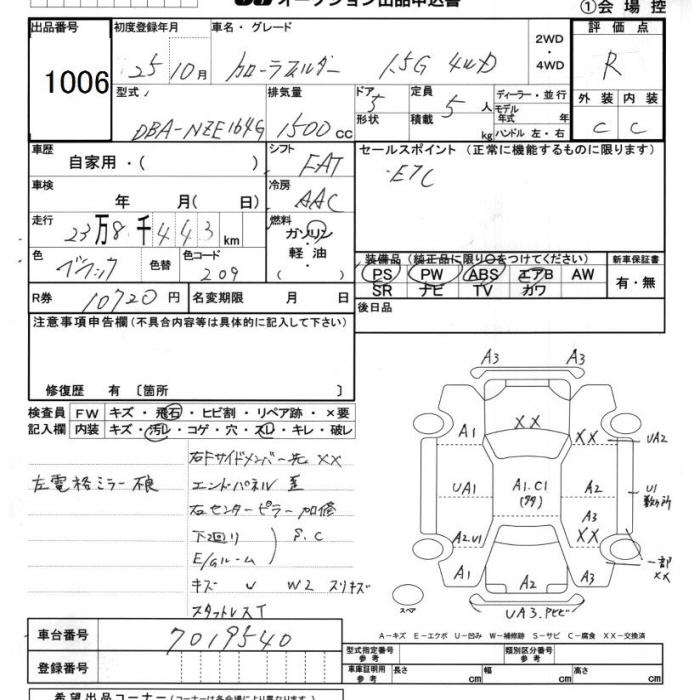 オークション出品申込書
①会場控
出品番号 初度登録年月 車名・グレード 評価点
1006 25 10月 カローラフィルダー 1.5G 4WD 2WD ・ 4WD R
型式 排気量 ドア 定員 ディーラー・並行 外装 内装
DBA-NZE164G 1500 cc 5 形状 5人 積載 kg モデル年式 年 ハンドル 左・右 C C
車歴 自家用・( ) シフト FAT セールスポイント (正常に機能するものに限ります)
車検 年 月( 日) 冷房 AAC ・ETC
走行 23万8千443km 燃料 ガソリン 軽油 ( )
色 ブラック 色替 色コード 209
装備品 (純正品に限り○をつけてください) 新車保証書
PS PW ABS エアB AW 有・無
SR ナビ TV カワ
R券 10720円 名変期限 月 日 後日品
注意事項申告欄(不具合内容等は具体的に記入して下さい)
修復歴 有 〔箇所 〕
検査員 FW キズ・飛石・ヒビ割・リペア跡・×要
記入欄 内装 キズ・汚レ・コゲ・穴・スレ・キレ・破レ
左電格ミラー不良
右Fサイドメンバー先 XX
エンドパネル 歪
右センターピラー 加修
下廻り
E/Gルーム
S.C
キズ U W2 スリキズ
スタットレスT
A3 A3
A1 XX XX UA2
UA1 A1.C1 A2 U1
A3
A2U1 XX 一部XX
A1 A2 A3
スペア
UA3.
A-キズ E-エクボ U-凹み W-補修跡 S-サビ C-腐食 XX-交換済
車台番号 7019540
登録番号
型式指定番号 参考 類別区分番号 参考
車庫証明用 参考 長さ cm 幅 cm 高さ cm
希望出品コーナー(コーナーは各会場により異なります)